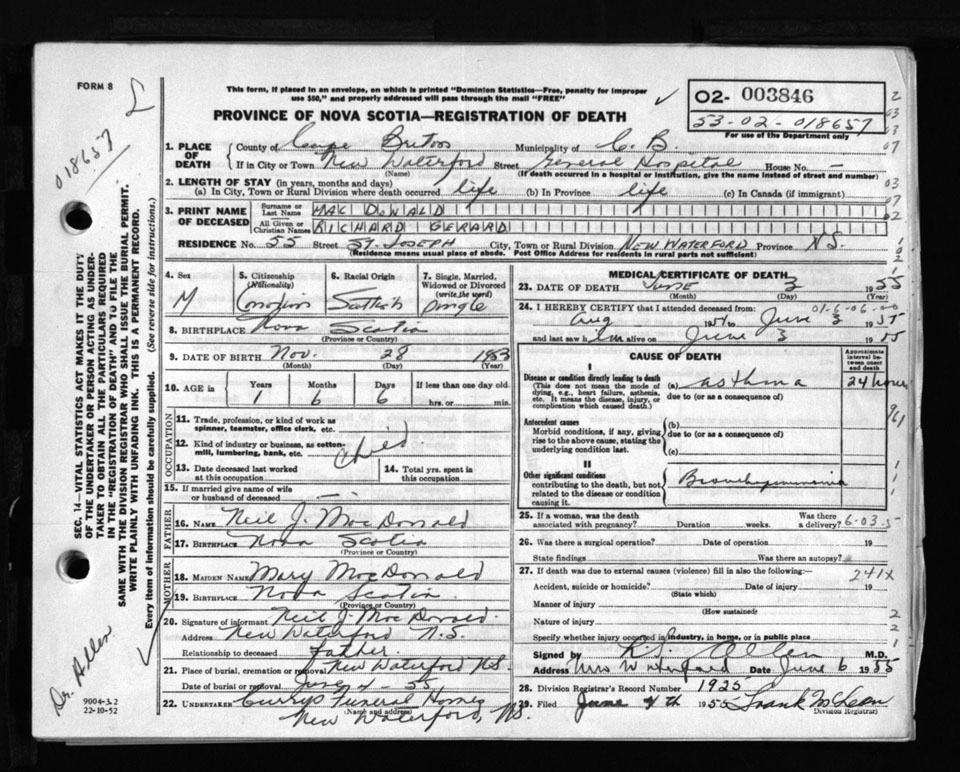 FORM 8
This form, if placed in an envelope, on which is printed "Dominion Statistics—Free, penalty for improper
use $50," and properly addressed will pass through the mail "FREE"
PROVINCE OF NOVA SCOTIA—REGISTRATION OF DEATH
02- 003846
53-02-018657
For use of the Department only
018657
1. PLACE OF DEATH
County of Cape Breton Municipality of C. B.
If in City or Town New Waterford Street General Hospital House No. —
(Name) (If death occurred in a hospital or institution, give the name instead of street and number)
2. LENGTH OF STAY (in years, months and days)
(a) In City, Town or Rural Division where death occurred life (b) In Province life (c) In Canada (if immigrant)
3. PRINT NAME OF DECEASED
Surname or Last Name MAC DONALD
All Given or Christian Names RICHARD GERARD
RESIDENCE No. 55 Street ST. JOSEPH City, Town or Rural Division NEW WATERFORD Province N.S.
(Residence means usual place of abode. Post Office Address for residents in rural parts not sufficient)
4. Sex M
5. Citizenship (Nationality) Canadian
6. Racial Origin Scottish
7. Single, Married, Widowed or Divorced (write the word) Single
8. BIRTHPLACE Nova Scotia
(Province or Country)
9. DATE OF BIRTH Nov. 28 1953
(Month) (Day) (Year)
10. AGE in Years Months Days If less than one day old.
1 6 6 hrs. or min.
OCCUPATION
11. Trade, profession, or kind of work as spinner, teamster, office clerk, etc.
12. Kind of industry or business, as cotton-mill, lumbering, bank, etc. Child
13. Date deceased last worked at this occupation
14. Total yrs. spent in this occupation
15. If married give name of wife or husband of deceased —
FATHER
16. NAME Neil J. MacDonald
17. BIRTHPLACE Nova Scotia
(Province or Country)
MOTHER
18. MAIDEN NAME Mary MacDonald
19. BIRTHPLACE Nova Scotia
(Province or Country)
20. Signature of informant Neil J. MacDonald
Address New Waterford N.S.
Relationship to deceased Father.
21. Place of burial, cremation or removal New Waterford N.S.
Date of burial or removal June 4 - 55
22. UNDERTAKER Currys Funeral Home
(Name and address)
New Waterford, N.S.
MEDICAL CERTIFICATE OF DEATH
23. DATE OF DEATH June 3 1955
(Month) (Day) (Year)
24. I HEREBY CERTIFY that I attended deceased from:
Aug 1954 to June 3 1955
and last saw him alive on June 3 1955
CAUSE OF DEATH
Approximate interval between onset and death
I
Disease or condition directly leading to death (a) asthma 24 hours
(This does not mean the mode of dying, e.g., heart failure, asthenia, etc. It means the disease, injury, or complication which caused death.)
due to (or as a consequence of)
Antecedent causes
Morbid conditions, if any, giving rise to the above cause, stating the underlying condition last.
(b)
due to (or as a consequence of)
(c)
II
Other significant conditions
contributing to the death, but not related to the disease or condition causing it.
Bronchopneumonia
25. If a woman, was the death associated with pregnancy? Duration weeks. Was there a delivery? 6-03.5
26. Was there a surgical operation? Date of operation 19
State findings Was there an autopsy?
27. If death was due to external causes (violence) fill in also the following:—
241X
Accident, suicide or homicide? Date of injury 19
(State which)
Manner of injury
(How sustained)
Nature of injury
Specify whether injury occurred in industry, in home, or in public place
Signed by Allen M.D.
Address Waterford Date June 6 1955
28. Division Registrar's Record Number 1925
29. Filed June 4th 1955 Frank McLean
Division Registrar)
SEC. 14—VITAL STATISTICS ACT MAKES IT THE DUTY
OF THE UNDERTAKER OR PERSON ACTING AS UNDER-
TAKER TO OBTAIN ALL THE PARTICULARS REQUIRED
IN THE "REGISTRATION OF DEATH" AND TO FILE THE
SAME WITH THE DIVISION REGISTRAR WHO SHALL ISSUE THE BURIAL PERMIT.
WRITE PLAINLY WITH UNFADING INK. THIS IS A PERMANENT RECORD.
Every item of information should be carefully supplied. (See reverse side for instructions.)
Dr. Allen
9004-3.2
22-10-52